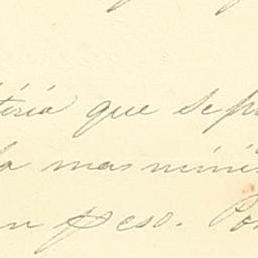 teria que se p
la mas mini
un peso. Po